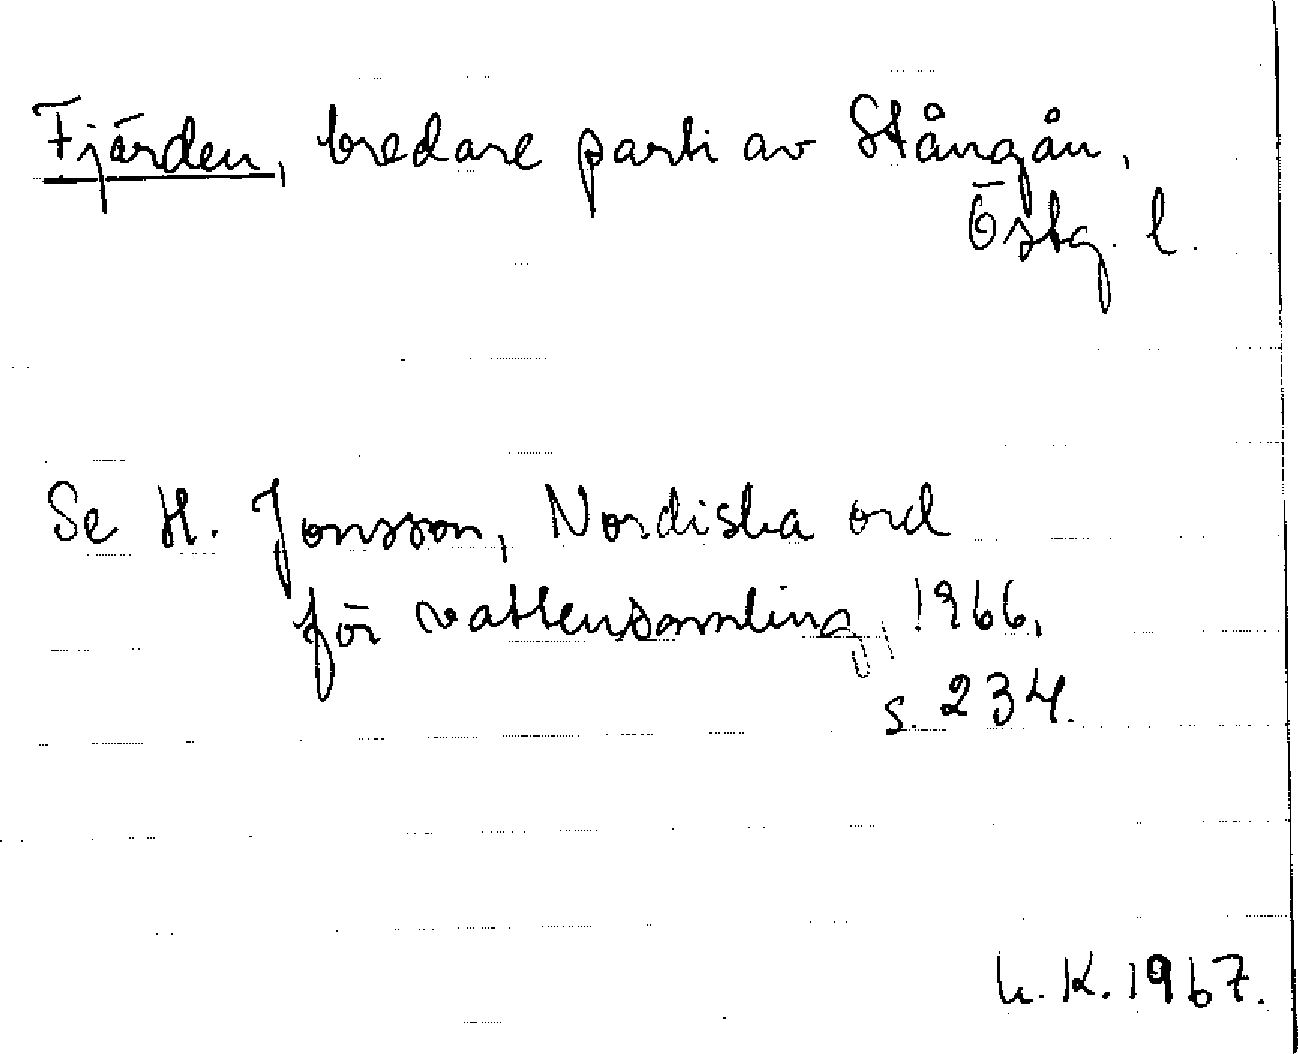 Fjärden, bredare parti av Stångån,
Östg. l.
Se H. Jonsson, Nordiska ord
för vattensamling, 1966,
s. 234.
K. 1967.